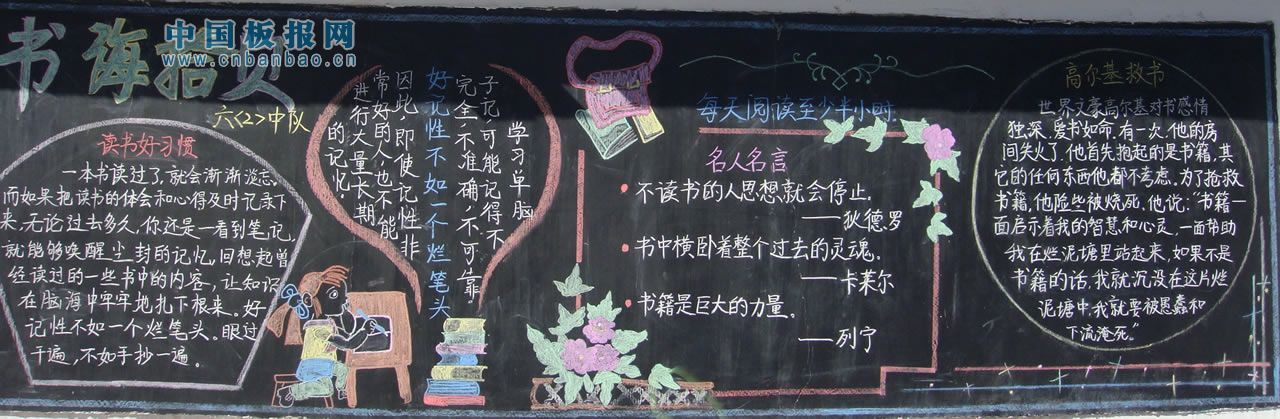 中国板报网
www.cnbanbao.cn
书海拾贝
六<2>中队
读书好习惯
一本书读过了,就会渐渐淡忘。
而如果把读书的体会和心得及时记录下
来,无论过去多久,你还是一看到笔记,
就能够唤醒尘封的记忆,回想起曾
经读过的一些书中的内容,让知识
在脑海中牢牢地扎下根来。好
记性不如一个烂笔头。眼过
千遍,不如手抄一遍。
学习单脑
子记,可能记得不
完全,不准确,不可靠
好记性不如一个烂笔头
因此,即使记性非
常好的人也不能
进行大量长期
的记忆.
每天阅读至少半小时.
名人名言
不读书的人思想就会停止.
——狄德罗
书中横卧着整个过去的灵魂.
——卡莱尔
书籍是巨大的力量.
——列宁
高尔基救书
世界文豪高尔基对书感情
独深,爱书如命.有一次,他的房
间失火了.他首先抱起的是书籍,其
它的任何东西他都不考虑.为了抢救
书籍,他险些被烧死.他说:“书籍一
面启示着我的智慧和心灵,一面帮助
我在烂泥塘里站起来,如果不是
书籍的话,我就沉没在这片烂
泥塘中,我就要被愚蠢和
下流淹死。”